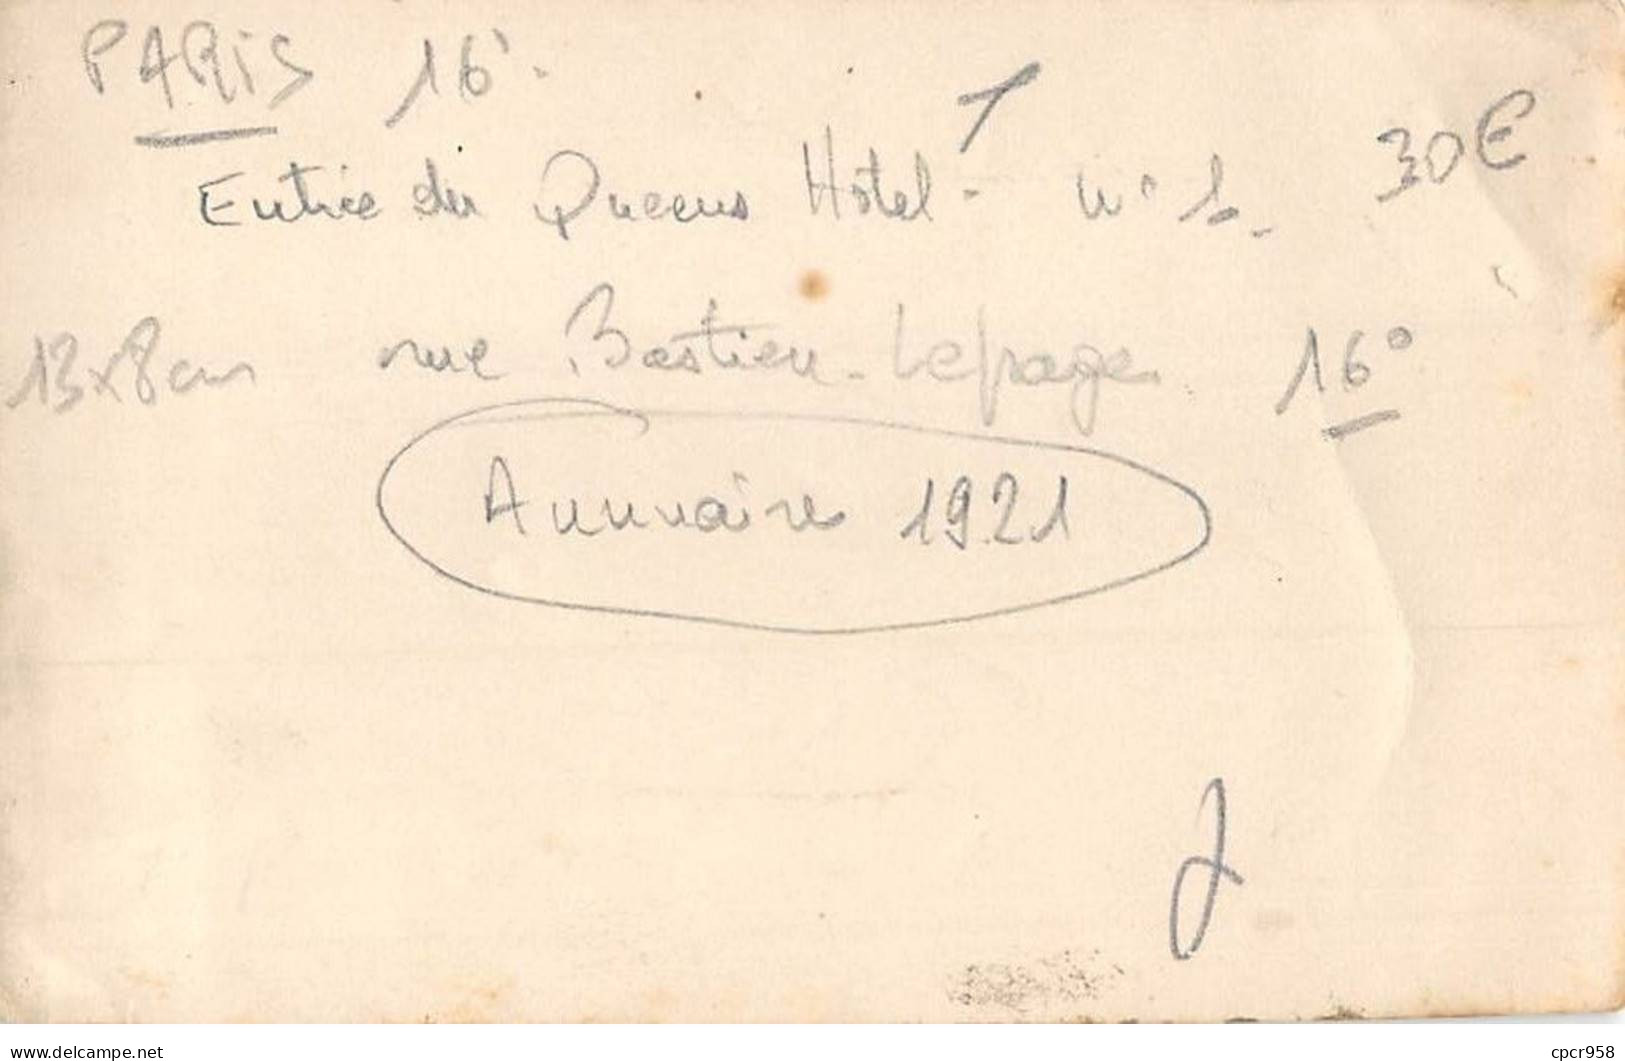 PARIS 16è.
30€
Entrée du Queens Hôtel - N° 1.
13x8cm rue Bastien-Lepage 16°
Annuaire 1921
delcampe.net
cpcr958